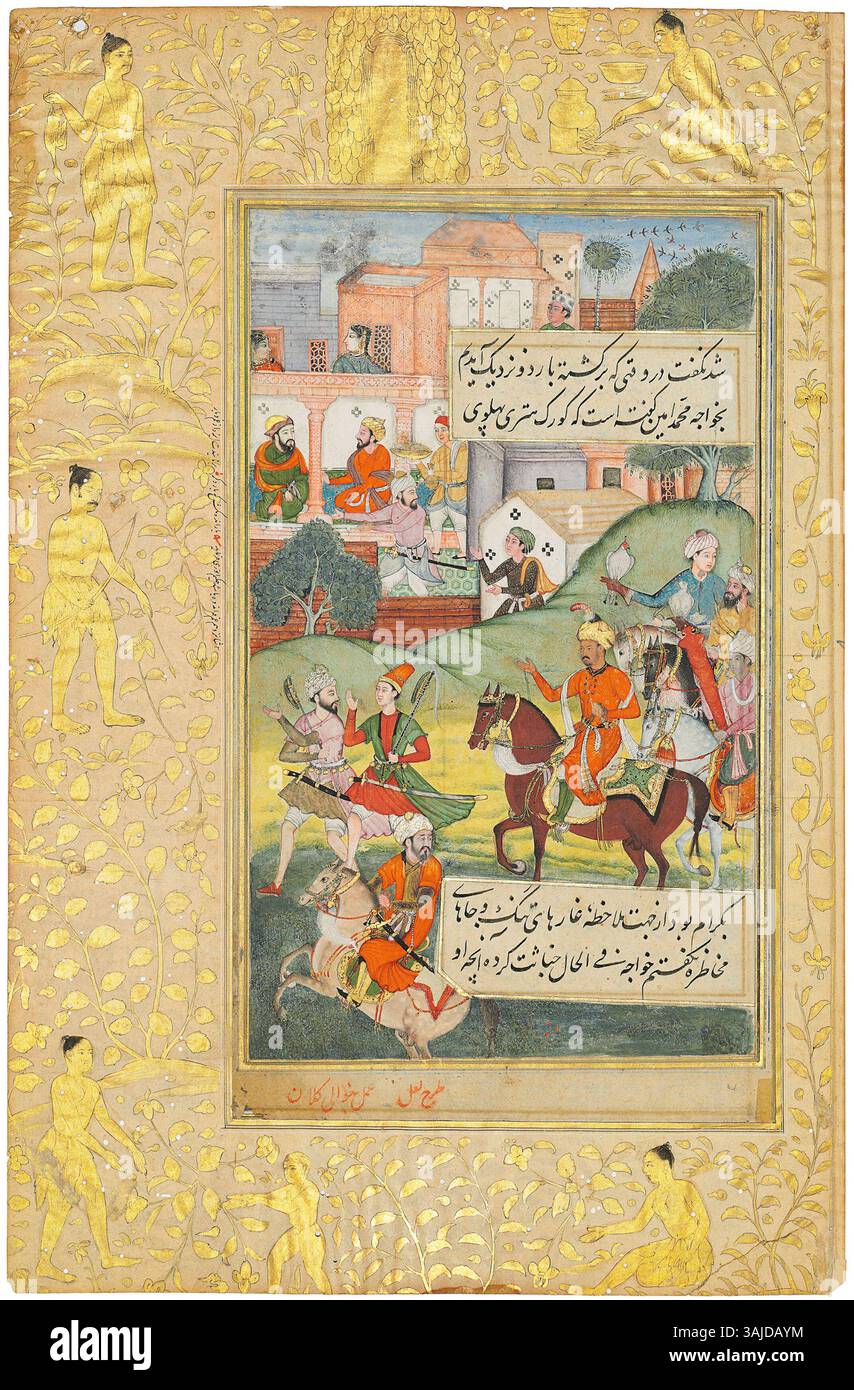 شد نکفت در وقتی که برکشته باردو نزدیک آمدیم
بخواجه محمد امین کفته است که کورک هتری پهلوی
بکرام بود از جهت ملاحظه غارهای تنک و جاهای
مخاطره نکفتم خواجه فی الحال خباثت کرده آنچه او
طرح لعل عمل کلان
alamy
Image ID: 3AJDAYM
www.alamy.com